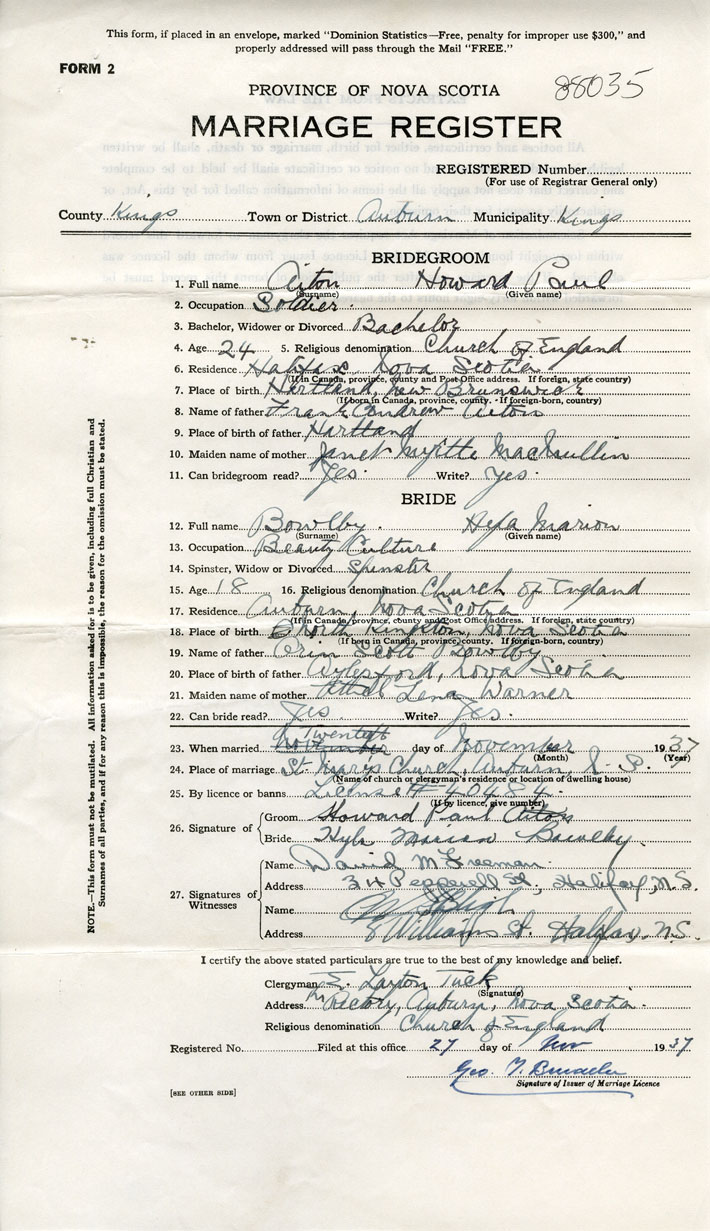 This form, if placed in an envelope, marked "Dominion Statistics—Free, penalty for improper use $300," and
properly addressed will pass through the Mail "FREE."
FORM 2
PROVINCE OF NOVA SCOTIA 88035
MARRIAGE REGISTER
REGISTERED Number
(For use of Registrar General only)
County Kings Town or District Auburn Municipality Kings
BRIDEGROOM
1. Full name Aiton Howard Paul
(Surname) (Given name)
2. Occupation Soldier.
3. Bachelor, Widower or Divorced Bachelor
4. Age 24 5. Religious denomination Church of England
6. Residence Halifax, Nova Scotia
(If in Canada, province, county and Post Office address. If foreign, state country)
7. Place of birth Hartland, New Brunswick
(If born in Canada, province, county. - If foreign-born, country)
8. Name of father Frank Andrew Aiton
9. Place of birth of father Hartland
10. Maiden name of mother Janet Myrtle MacMullin
11. Can bridegroom read? Yes. Write? Yes.
BRIDE
12. Full name Bowlby. Marion
(Surname) (Given name)
13. Occupation Beauty Culture
14. Spinster, Widow or Divorced Spinster
15. Age 18 16. Religious denomination Church of England
17. Residence Auburn, Nova Scotia
(If in Canada, province, county and Post Office address. If foreign, state country)
18. Place of birth North Kingston, Nova Scotia
(If born in Canada, province, county. If foreign-born, country)
19. Name of father Scott Bowlby
20. Place of birth of father Aylesford, Nova Scotia
21. Maiden name of mother Ethel Lena Warner
22. Can bride read? Yes. Write? Yes.
Twentieth
23. When married November day of November 1937
(Month) (Year)
24. Place of marriage St. Mary's Church, Auburn, N.S.
(Name of church or clergyman's residence or location of dwelling house)
25. By licence or banns License # 40484.
(If by licence, give number)
26. Signature of
Groom Howard Paul Aiton
Bride Marion Bowlby.
27. Signatures of Witnesses
Name David M Freeman.
Address 34 Pepperell St., Halifax, N.S.
Name
Address Williams St. Halifax. N.S.
I certify the above stated particulars are true to the best of my knowledge and belief.
Clergyman E. Laxton Tuck
(Signature)
Address The Rectory, Auburn, Nova Scotia.
Religious denomination Church of England
Registered No. Filed at this office 27 day of Nov 1937
Geo.
Signature of Issuer of Marriage Licence
[SEE OTHER SIDE]
NOTE.—This form must not be mutilated. All information asked for is to be given, including full Christian and
Surnames of all parties, and if for any reason this is impossible, the reason for the omission must be stated.